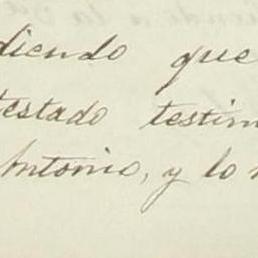 diendo que
testado testim
Antonio, y lo